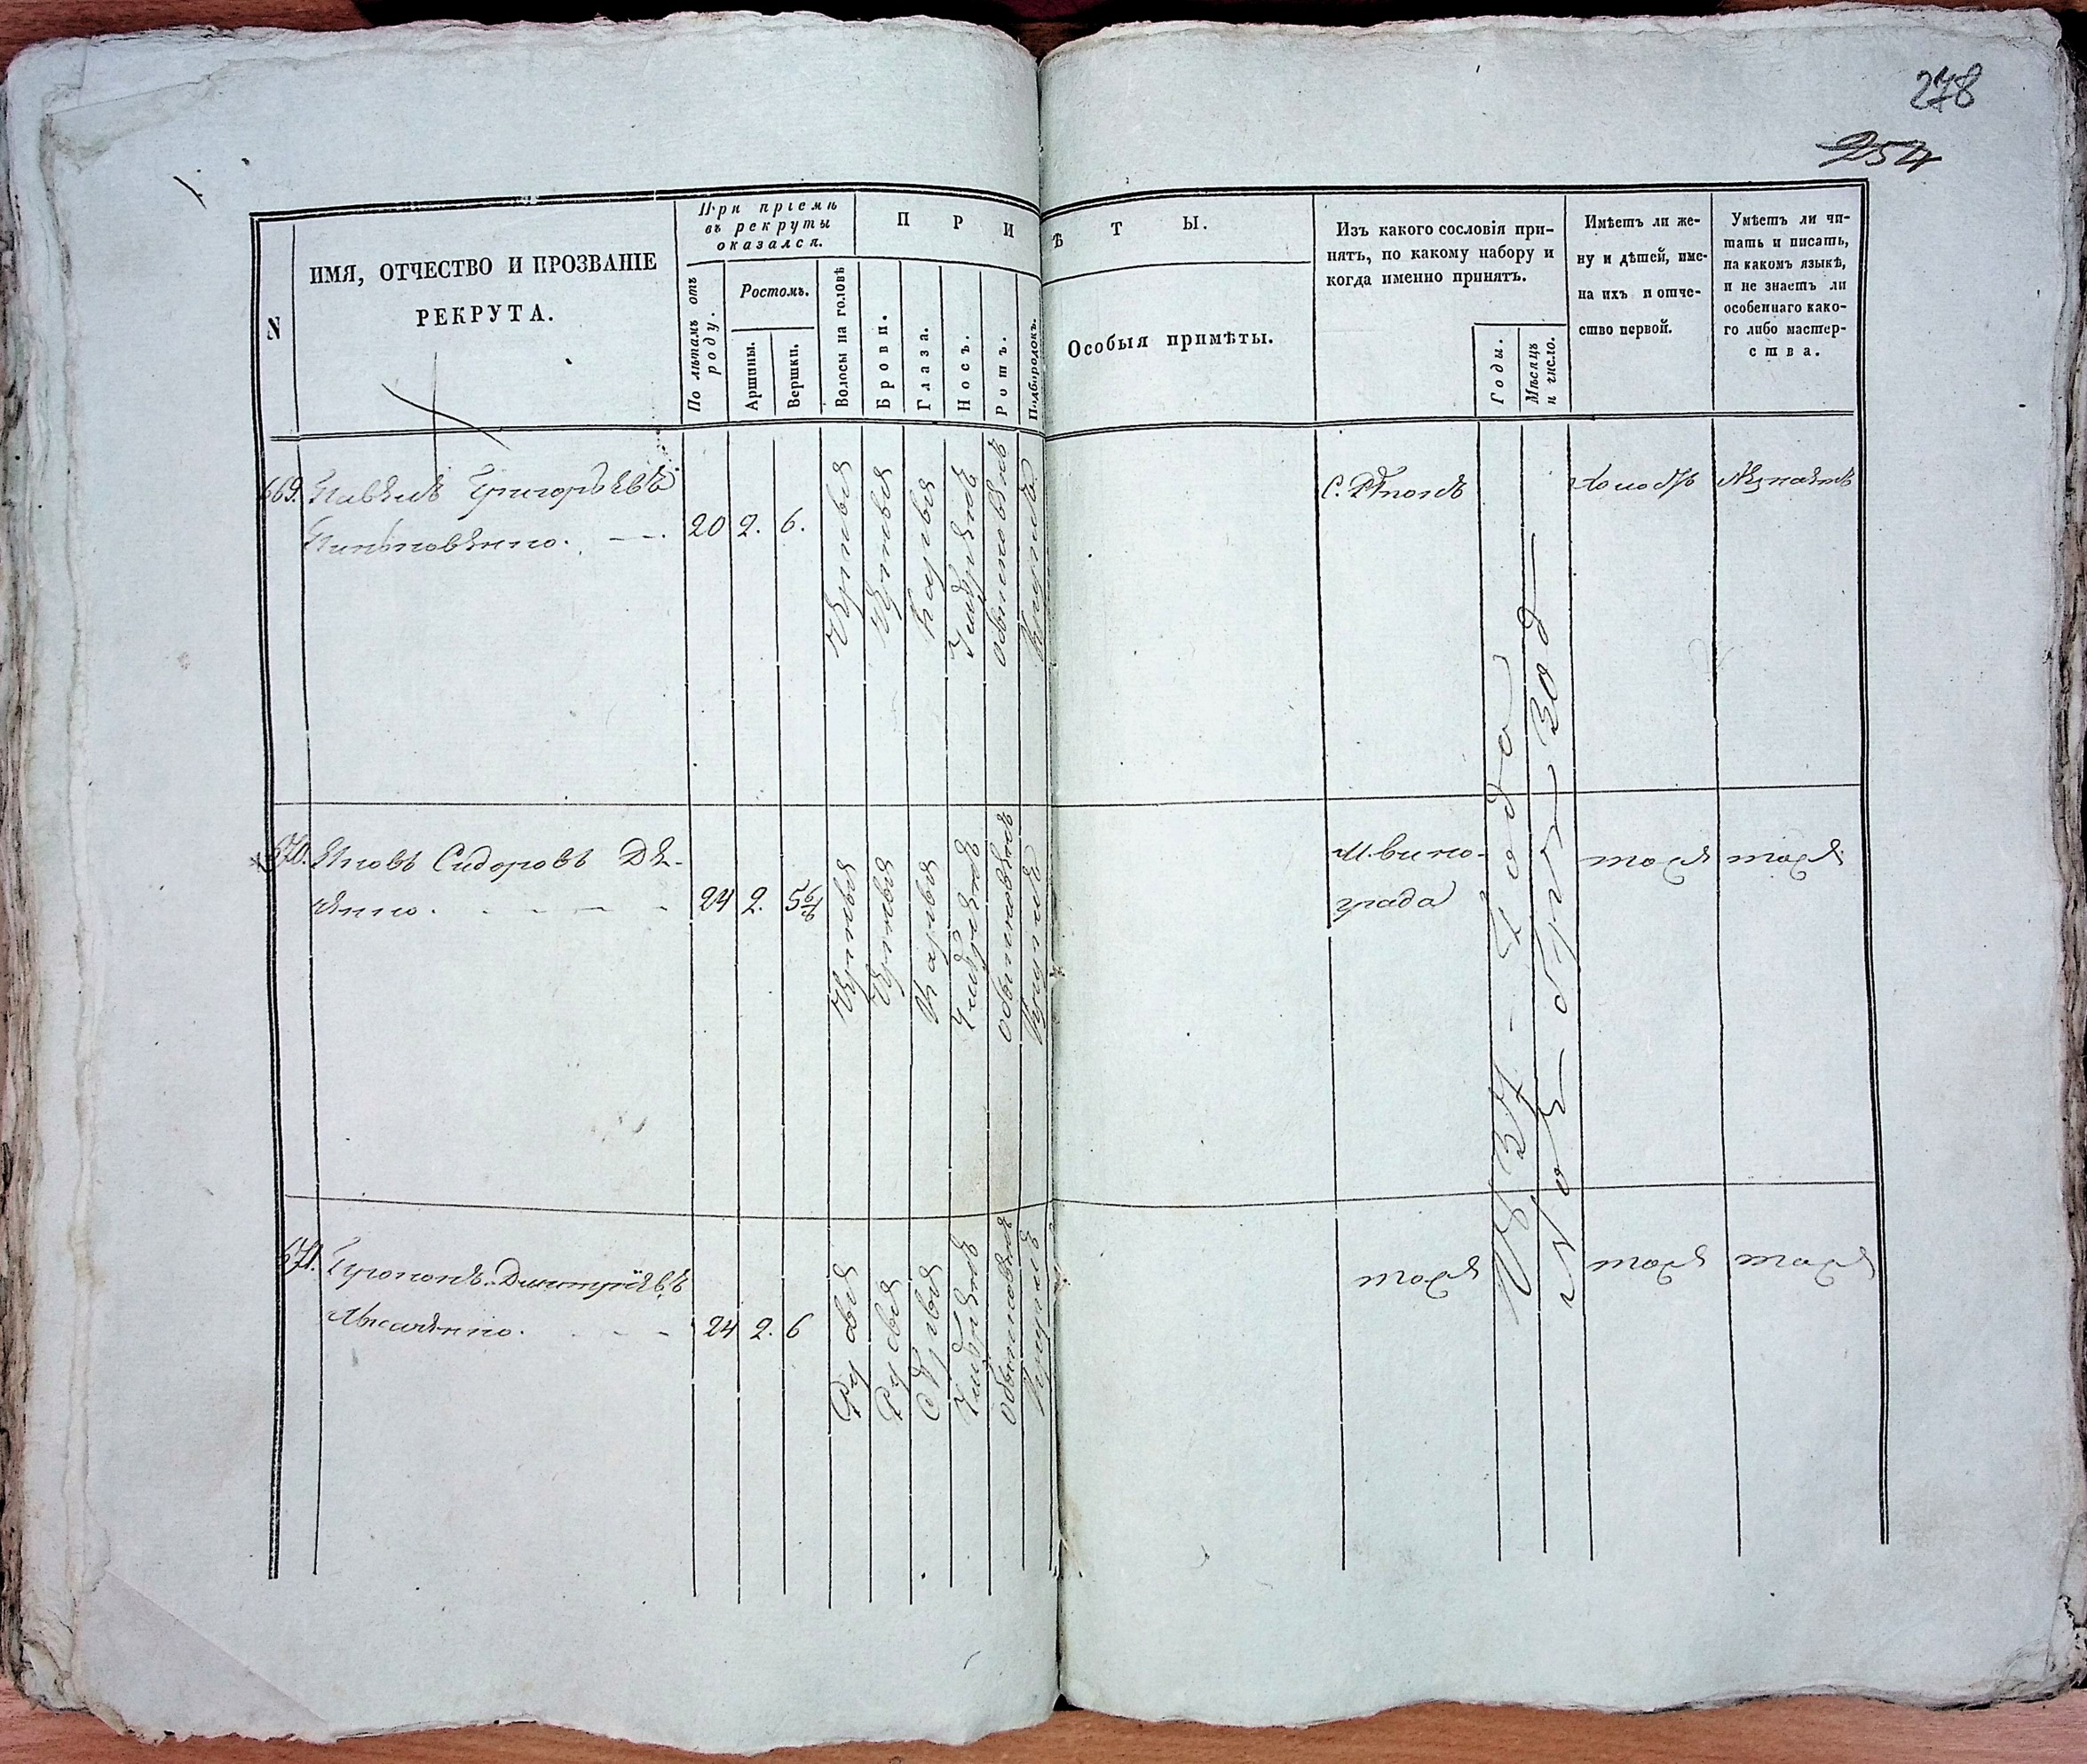 278
254
N
ИМЯ, ОТЧЕСТВО И ПРОЗВАНІЕ
РЕКРУТА.
При пріемѣ
въ рекруты
оказался.
По лѣтамъ отъ
роду.
Ростомъ.
Аршины.
Вершки.
П Р И
Волосы на головѣ
Брови.
Глаза.
Носъ.
Ротъ.
Подбородокъ.
Ѣ Т Ы.
Особыя примѣты.
Изъ какого сословія при-
нятъ, по какому набору и
когда именно принятъ.
Годы.
Мѣсяцъ
и число.
Имѣетъ ли же-
ну и дѣтей, име-
на ихъ и отче-
ство первой.
Умѣетъ ли чи-
тать и писать,
на каком языкѣ,
и не знаетъ ли
особеннаго како-
го либо мастер-
ства.
669. Павелъ Григорьевъ
20 2. 6.
Карыя
Умѣренъ
обыкновенъ
Круглъ
Холостъ
Незнаетъ
670. Яковъ Сидоровъ Де-
24 2. 5 6/8
Карыя
Умѣренъ
обыкновенъ
Круглъ
М. вино-
града
тоже
тоже
671. Дмитріевъ
24 2. 6
Русыя
Русыя
Сѣрыя
Умѣренъ
обыкновенъ
Круглъ
тоже
тоже
тоже
года